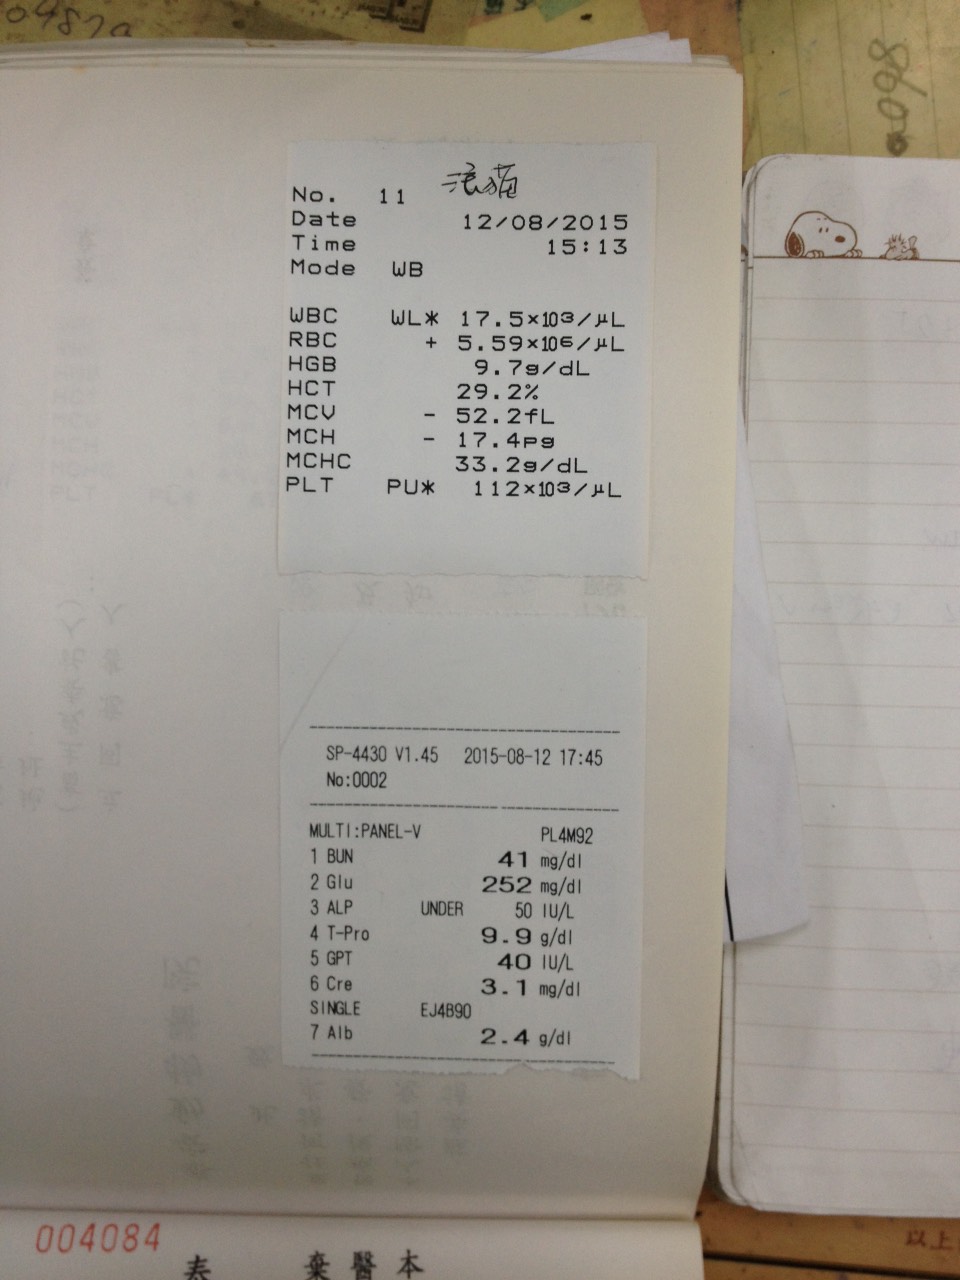 0487a
8600
浪貓
No. 11
Date 12/08/2015
Time 15:13
Mode WB
WBC WL* 17.5×10³/μL
RBC + 5.59×10⁶/μL
HGB 9.7g/dL
HCT 29.2%
MCV - 52.2fL
MCH - 17.4pg
MCHC 33.2g/dL
PLT PU* 112×10³/μL
SP-4430 V1.45 2015-08-12 17:45
No:0002
MULTI:PANEL-V PL4M92
1 BUN 41 mg/dl
2 Glu 252 mg/dl
3 ALP UNDER 50 IU/L
4 T-Pro 9.9 g/dl
5 GPT 40 IU/L
6 Cre 3.1 mg/dl
SINGLE EJ4B90
7 Alb 2.4 g/dl
004084
本醫棄
以上